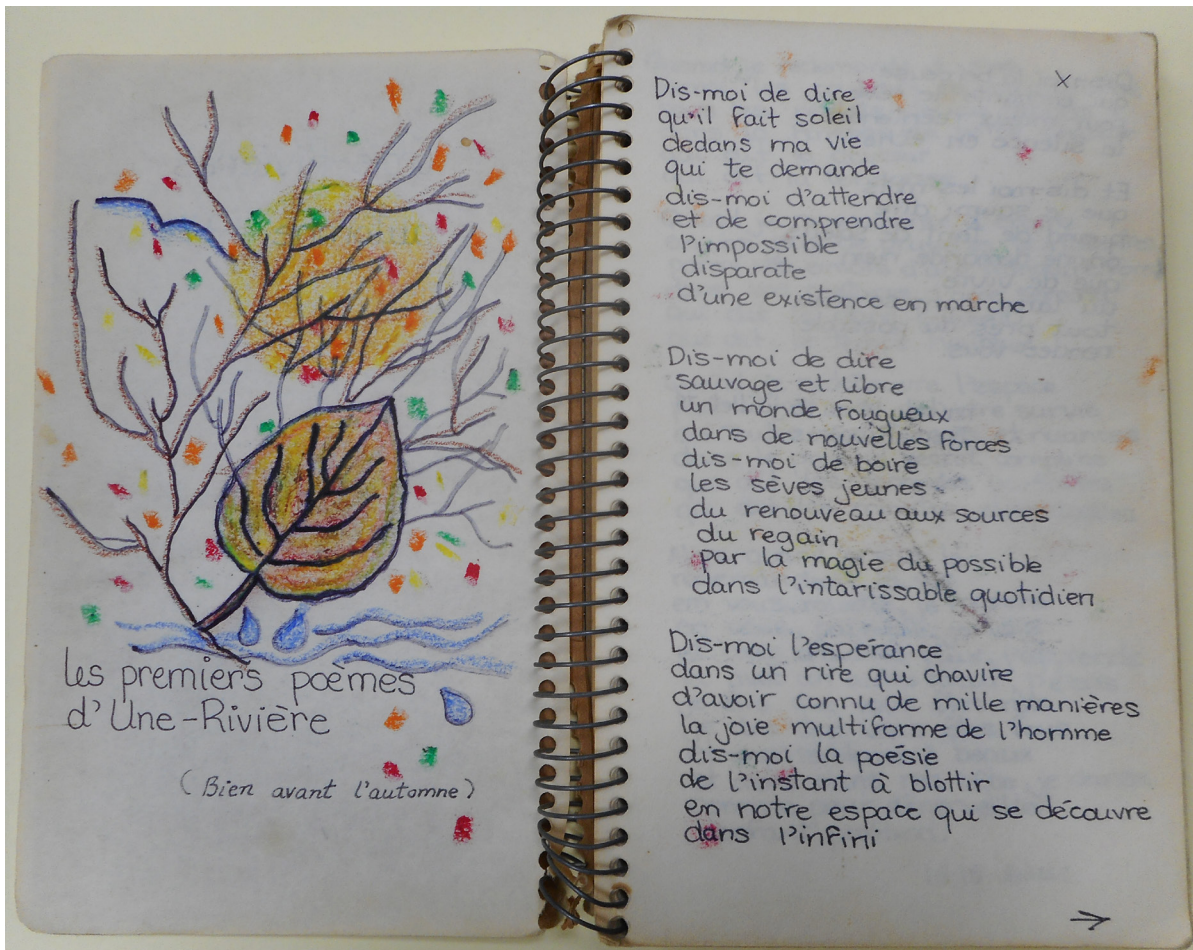 les premiers poèmes
d'Une-Rivière
(Bien avant l'automne)
x
Dis-moi de dire
qu'il fait soleil
dedans ma vie
qui te demande
dis-moi d'attendre
et de comprendre
l'impossible
disparate
d'une existence en marche
Dis-moi de dire
sauvage et libre
un monde fougueux
dans de nouvelles forces
dis-moi de boire
les sèves jeunes
du renouveau aux sources
du regain
par la magie du possible
dans l'intarissable quotidien
Dis-moi l'espérance
dans un rire qui chavire
d'avoir connu de mille manières
la joie multiforme de l'homme
dis-moi la poésie
de l'instant à blottir
en notre espace qui se découvre
dans l'infini